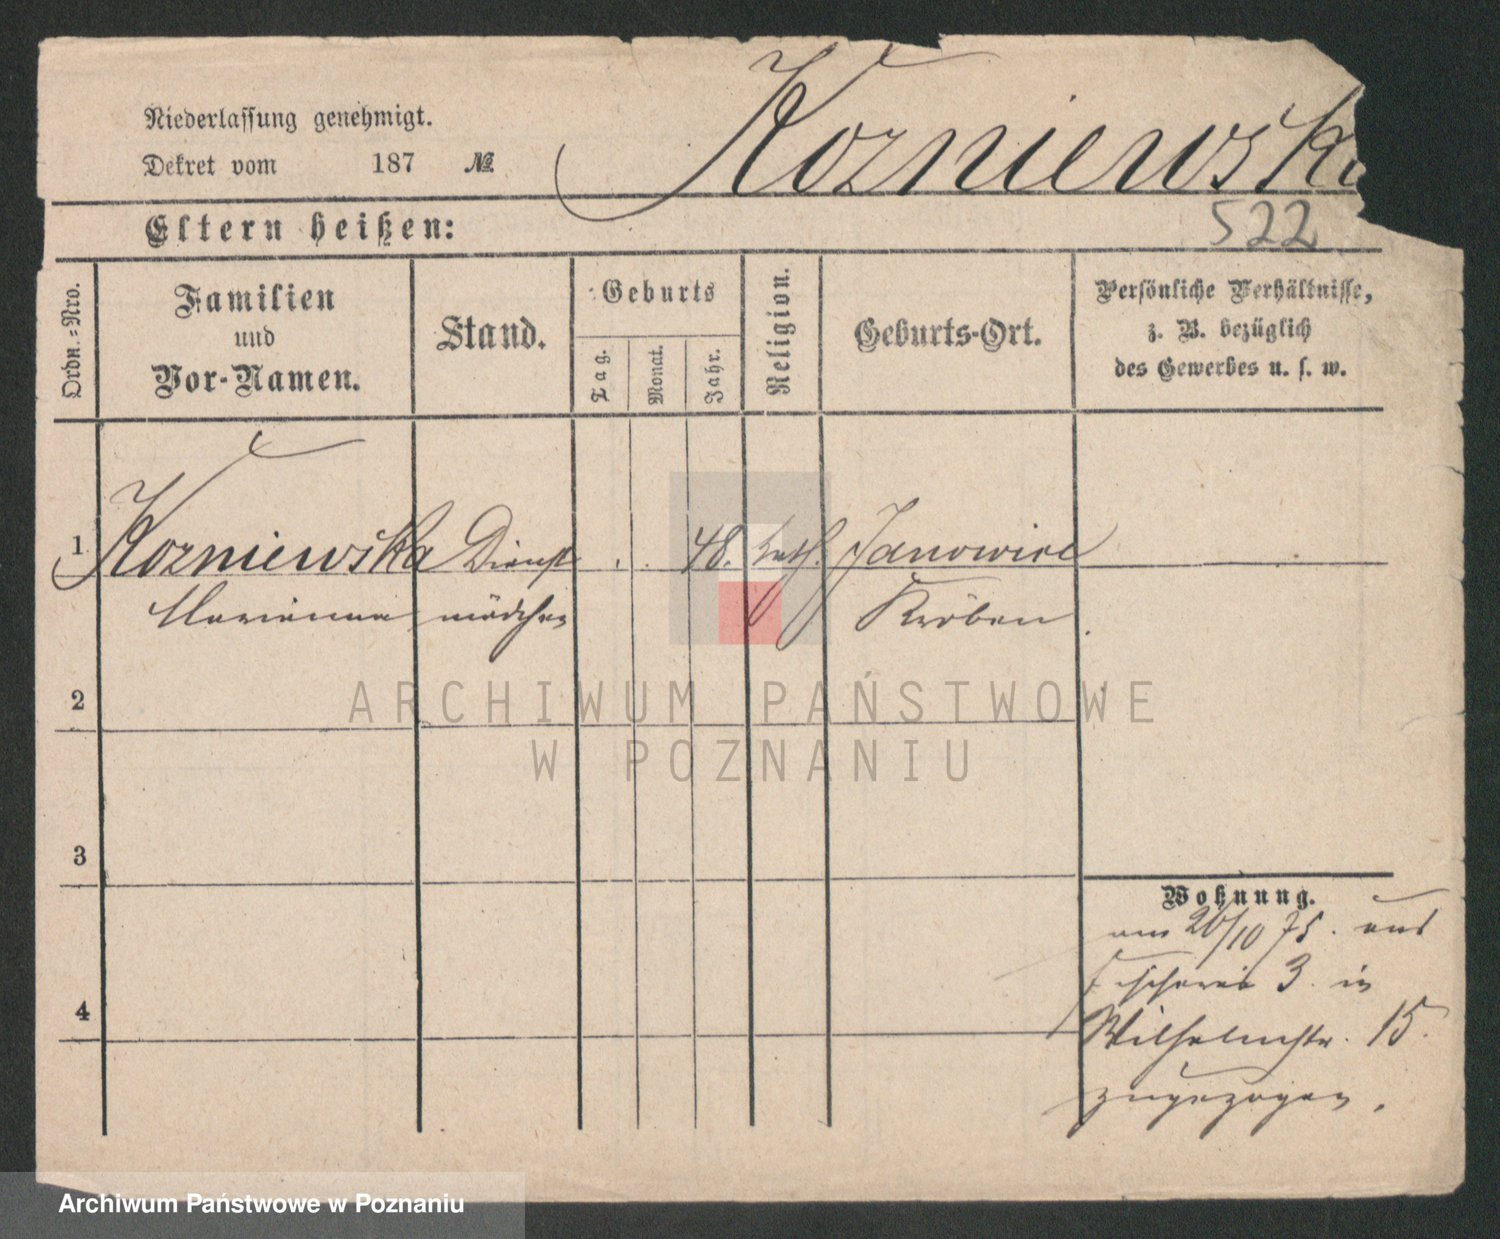 Niederlassung genehmigt.
Dekret vom 187 №
Kozniewska
522
Eltern heißen:
Ordn.-Nro.
Familien
und
Vor-Namen.
Stand.
Geburts
Tag.
Monat.
Jahr.
Religion.
Geburts-Ort.
Persönliche Verhältnisse,
z. B. bezüglich
des Gewerbes u. s. w.
1 Kozniewska Dienst 48. kath. Janowice
Marianna mädchen Kröben
2
3
4
Wohnung.
am 26/10 75. aus
Fischerei 3. in
Wilhelmstr. 15.
zugezogen.
ARCHIWUM PAŃSTWOWE
W POZNANIU
Archiwum Państwowe w Poznaniu